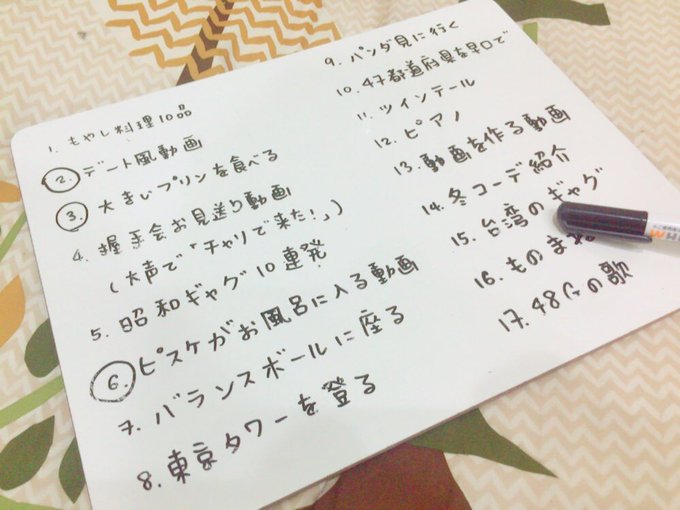 1. もやし料理10品
2. デート風動画
3. 大きいプリンを食べる
4. 握手会お見送り動画
(大声で「チャリで来た!」)
5. 昭和ギャグ10連発
6. ピスケがお風呂に入る動画
7. バランスボールに座る
8. 東京タワーを登る
9. パンダ見に行く
10. 47都道府県を早口で
11. ツインテール
12. ピアノ
13. 動画を作る動画
14. 冬コーデ紹介
15. 台湾のギャグ
16. ものまね
17. 48Gの歌